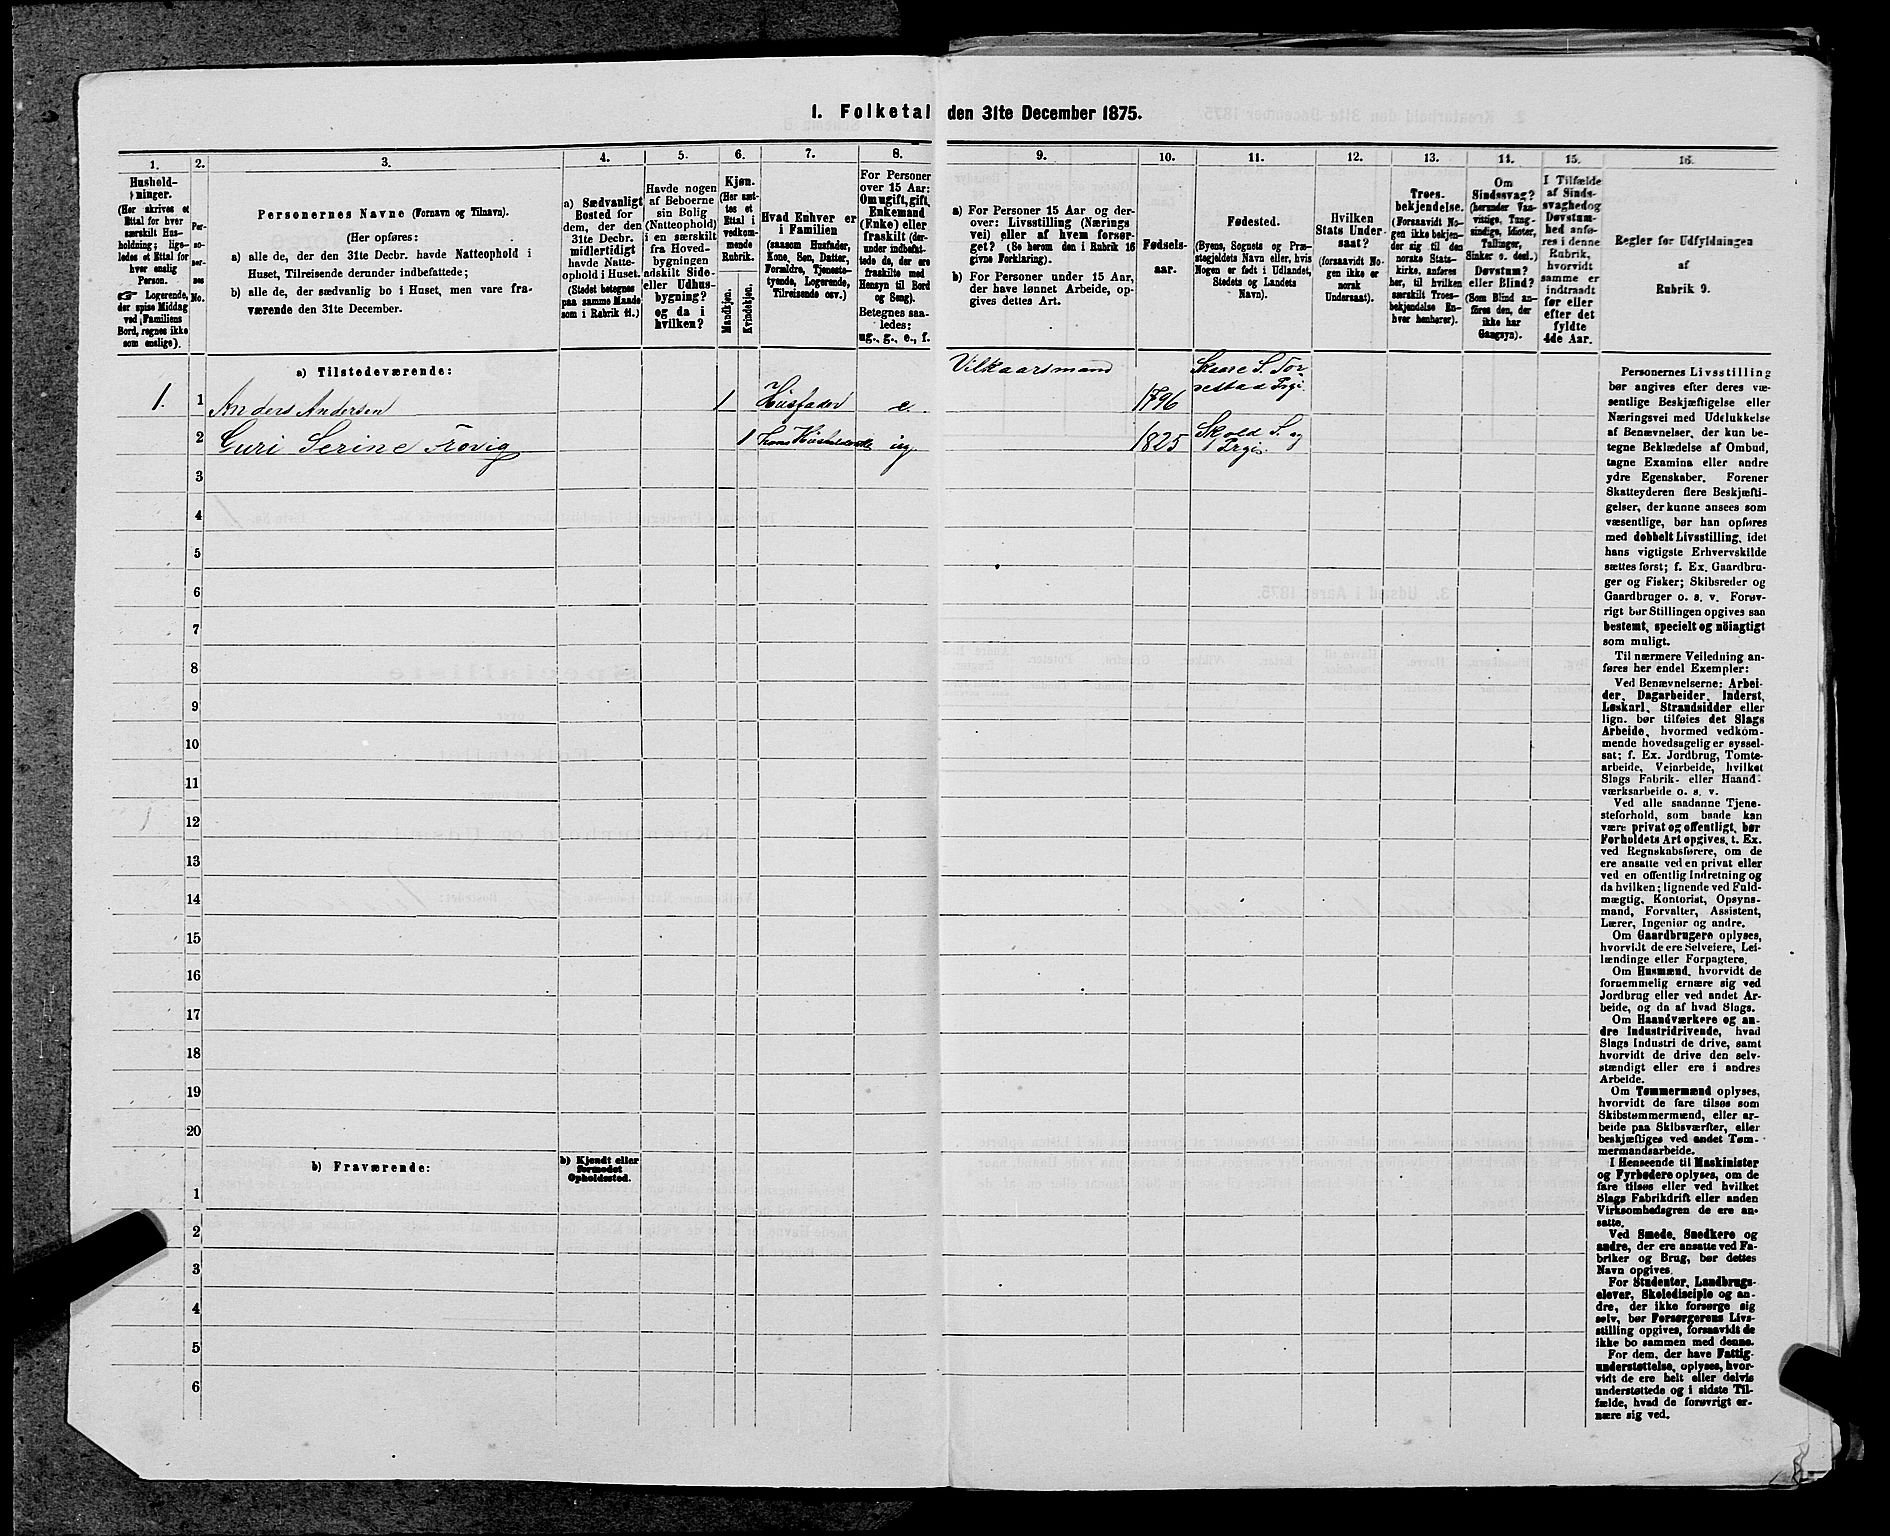 1. Folketal den 31te December 1875.
1.
2.
3.
4.
5.
6.
7.
8.
9.
10.
11.
12.
13.
14.
15.
16.
Hushold-
ninger.
(Her skrives et
Ettal for hver
særskilt Hus-
holdning; lige-
ledes et Ettal for
hver enslig
Person.
☞ Logerende,
der spise Middag
ved Familiens
Bord, regnes ikke
som enslige).
Per-
so-
ner-
nes
No.
Personernes Navne (Fornavn og Tilnavn).
(Her opføres:
a) alle de, der den 31te Decbr. havde Natteophold i
Huset, Tilreisende derunder indbefattede;
b) alle de, der sædvanlig bo i Huset, men vare fra-
værende den 31te December.
a) Sædvanligt
Bosted for
dem, der den
31te Decbr.
midlertidigt
havde Natte-
ophold i Huset.
(Stedet betegnes
paa samme Maade
som i Rubrik 11.)
Havde nogen
af Beboerne
sin Bolig
(Natteophold)
i en særskilt
fra Hoved-
bygningen
adskilt Side-
eller Udhus-
bygning?
og da i
hvilken?
Kjøn.
(Her sæt-
tes et
Ettal i
vedkom-
mende
Rubrik.
Mandkjøn.
Kvindekjøn.
Hvad Enhver er
i Familien
(saasom Husfader,
Kone, Søn, Datter,
Forældre, Tjeneste-
tyende, Logerende,
Tilreisende osv.)
For Personer
over 15 Aar:
Om ugift, gift,
Enkemand
(Enke) eller
fraskilt (der-
under indbefat-
tede de, der ere
fraskilte med
Hensyn til Bord
og Seng).
Betegnes saa-
ledes:
ug., g., e., f.
a) For Personer 15 Aar og der-
over: Livsstilling (Nærings
vei) eller af hvem forsør-
get? (Se herom den i Rubrik 16
givne Forklaring).
b) For Personer under 15 Aar,
der have lønnet Arbeide, op-
gives dettes Art.
Fødsels-
aar.
Fødested.
(Byens, Sognets og Præ-
stegjeldets Navn eller, hvis
Nogen er født i Udlandet,
Stedets og Landets
Navn).
Hvilken
Stats Under-
saat?
(forsaavidt No-
gen ikke er
norsk
Undersaat).
Troes-
bekjendelse.
(Forsaavidt No-
gen ikke bekjen-
der sig til den
norske Stats-
kirke, anføres
her, til hvilken
særskilt Troes-
bekjendelse En-
hver henhører).
Om
Sindssvag?
(herunder Van-
vittige, Tung-
sindige, Idioter,
Tullinger,
Sinker o. desl.)
Døvstum?
eller Blind?
(Som Blind an-
føres den, der
ikke har
Gangsyn).
I Tilfælde
af Sinds-
svaghed og
Døvstum-
hed anfø-
res i denne
Rubrik,
hvorvidt
samme er
indtraadt
før eller
efter det
fyldte
4de Aar.
Regler for Udfyldningen
af
Rubrik 9.
a) Tilstedeværende:
1. 1 Anders Andersen 1 Husfader e. Vilkaarsmand 1796 Skaare S. Tor-
vestad Prgj.
2 Guri Serine Frovig 1 hans Husholderske ug. 1825 Skjold S. og
Prgj.
3
4
5
6
7
8
9
10
11
12
13
14
15
16
17
18
19
20
b) Fraværende:
b) Kjendt eller
formodet
Opholdssted.
1
2
3
4
5
6
Personernes Livsstilling
bør angives efter deres væ-
sentlige Beskjæftigelse eller
Næringsvei med Udelukkelse
af Benævnelser, der kun be-
tegne Beklædelse af Ombud,
tagne Examina eller andre
ydre Egenskaber. Forener
Skatteyderen flere Beskjæfti-
gelser, der kunne ansees som
væsentlige, bør han opføres
med dobbelt Livsstilling, idet
hans vigtigste Erhvervskilde
sættes først; f. Ex. Gaardbru-
ger og Fisker; Skibsreder og
Gaardbruger o. s. v. Forøv-
rigt bør Stillingen opgives saa
bestemt, specielt og nöiagtigt
som muligt.
Til nærmere Veiledning an-
føres her endel Exempler:
Ved Benævnelserne: Arbei-
der, Dagarbeider, Inderst,
Løskarl, Strandsidder eller
lign. bør tilføies det Slags
Arbeide, hvormed vedkom-
mende hovedsagelig er syssel-
sat; f. Ex. Jordbrug, Tomte-
arbeide, Veiarbeide, hvilket
Slags Fabrik- eller Haand-
værksarbeide o. s. v.
Ved alle saadanne Tjene-
steforhold, som baade kan
være privat og offentligt, bør
Forholdets Art opgives, t. Ex.
ved Regnskabsførere, om de
ere ansatte ved en privat eller
ved en offentlig Indretning og
da hvilken; lignende ved Fuld-
mægtig, Kontorist, Opsyns-
mand, Forvalter, Assistent,
Lærer, Ingeniør og andre.
Om Gaardbrugere oplyses,
hvorvidt de ere Selveiere, Lei-
lændinge eller Forpagtere.
Om Husmænd, hvorvidt de
fornemmelig ernære sig ved
Jordbrug eller ved andet Ar-
beide, og da af hvad Slags.
Om Haandværkere og an-
dre Industridrivende, hvad
Slags Industri de drive, samt
hvorvidt de drive den selv-
stændigt eller ere i andres
Arbeide.
Om Tømmermænd oplyses,
hvorvidt de fare tilsøs som
Skibstømmermænd, eller ar-
beide paa Skibsværfter, eller
beskjæftiges ved andet Tøm-
mermandsarbeide.
I Henseende til Maskinister
og Fyrbødere oplyses, om de
fare tilsøs eller ved hvilket
Slags Fabrikdrift eller anden
Virksomhedsgren de ere an-
satte.
Ved Smede, Snedkere og
andre, der ere ansatte ved Fa-
briker og Brug, bør dettes
Navn opgives.
For Studenter, Landbrugs-
elever, Skoledisciple og an-
dre, der ikke forsørge sig
selv, bør Forsørgerens Livs-
stilling opgives, forsaavidt de
ikke bo sammen med denne.
For dem, der have Fattig-
understøttelse, oplyses, hvor-
vidt de ere helt eller delvis
understøttede og i sidste Til-
fælde, hvad de forøvrigt er-
nære sig ved.